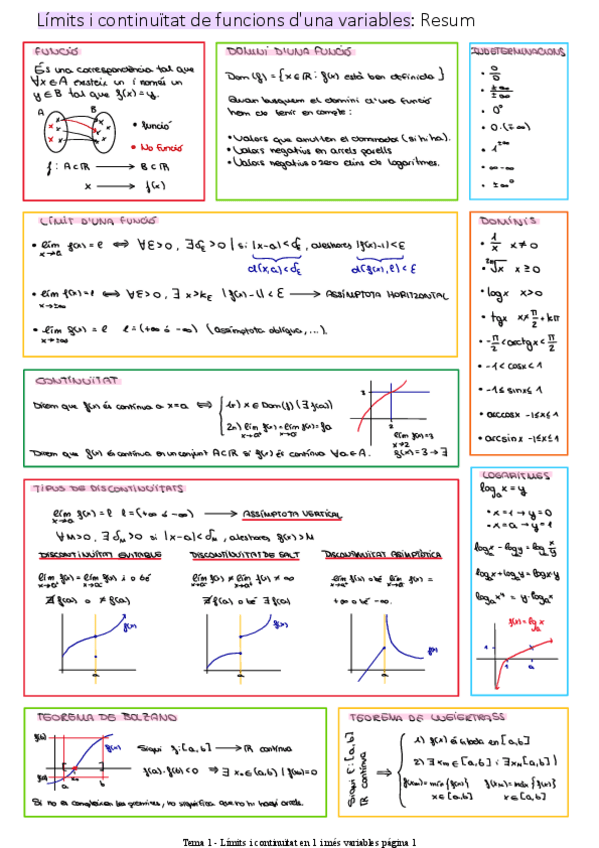 Límits i continuïtat de funcions d'una variables: Resum
FUNCIÓ
És una correspondència tal que
∀x∈A existeix un i només un
y∈B tal que f(x)=y.
A B
• funció
• No funció
f: A⊂ℝ → B⊂ℝ
x → f(x)
DOMINI D'UNA FUNCIÓ
Dom(f) = {x∈ℝ : f(x) està ben definida}
Quan busquem el domini d'una funció
hem de tenir en compte:
• Valors que anul·len el denominador (si hi ha).
• Valors negatius en arrels parells
• Valors negatius o zero dins de logaritmes.
INDETERMINACIONS
• 0/0
• ±∞/±∞
• 0⁰
• 0·(±∞)
• 1^±∞
• ∞-∞
• ±∞⁰
LÍMIT D'UNA FUNCIÓ
• lim x→a f(x) = l ⟺ ∀ε>0, ∃δε>0 | si |x-a|<δε, aleshores |f(x)-l|<ε
d(x,a)<δε d(f(x),l)<ε
• lim x→±∞ f(x)=l ⟺ ∀ε>0, ∃ x>kε |f(x)-l|<ε → ASSÍMPTOTA HORITZONTAL
• lim x→±∞ f(x) = l l=(+∞ ó -∞) (assímptota obliqua,...).
DOMINIS
• 1/x x≠0
• ²ⁿ√x x≥0
• logx x>0
• tgx x≠π/2+kπ
• -π/2<arctgx<π/2
• -1<cosx<1
• -1≤sinx≤1
• arccosx -1≤x≤1
• arcsinx -1≤x≤1
CONTINUÏTAT
Diem que f(x) és contínua a x=a ⟺
1r) x∈Dom(f) (∃f(a))
2n) lim x→a⁺ f(x)=lim x→a⁻ f(x)=fa
Diem que f(x) és contínua en un conjunt A⊂ℝ si f(x) és contínua ∀a∈A.
3
2
lim x→2 f(x)=3
f(x)=3→∃
TIPUS DE DISCONTINUÏTATS
lim x→a f(x)=l l=(+∞ ó -∞) → ASSÍMPTOTA VERTICAL
∀M>0, ∃δM>0 si |x-a|<δM, aleshores f(x)>M
DISCONTINUÏTAT EVITABLE DISCONTINUÏTAT DE SALT DISCONTINUÏTAT ASIMPTÒTICA
lim x→a⁺ f(x)=lim x→a⁻ f(x) i o bé
∄f(a) o ≠f(a)
lim x→a⁺ f(x)≠lim x→a⁻ f(x)≠∞
∄f(a) o bé ∃f(a)
lim x→a⁺ f(x) o bé lim x→a⁻ f(x) =
+∞ o bé -∞.
f(x) a
f(x) a
f(x) a
LOGARITMES
logₐx=y
• x=1→y=0
• x=a→y=1
logₐx-logₐy=logₐx/y
logₐx+logₐy=logₐx·y
logₐxʸ = y·logₐx
f(x)=logₐx
1
1 a
TEOREMA DE BOLZANO
f(b)
f(x)
f(a)
a x₀ b
Sigui f:[a,b] → ℝ contínua
f(a)·f(b)<0 ⟹ ∃x₀∈(a,b) | f(x₀)=0
Si no es compleixen les premises, no significa que no hi hagi arrels.
TEOREMA DE WEIERTRASS
Sigui f:[a,b]
ℝ contínua
⟹
1) f(x) és fitada en [a,b]
2) ∃xm∈[a,b] i ∃xM∈[a,b] |
f(xm)=min{f(x)} f(xM)=màx{f(x)}
x∈[a,b] x∈[a,b]
Tema 1 - Límits i continuïtat en 1 i més variables pàgina 1